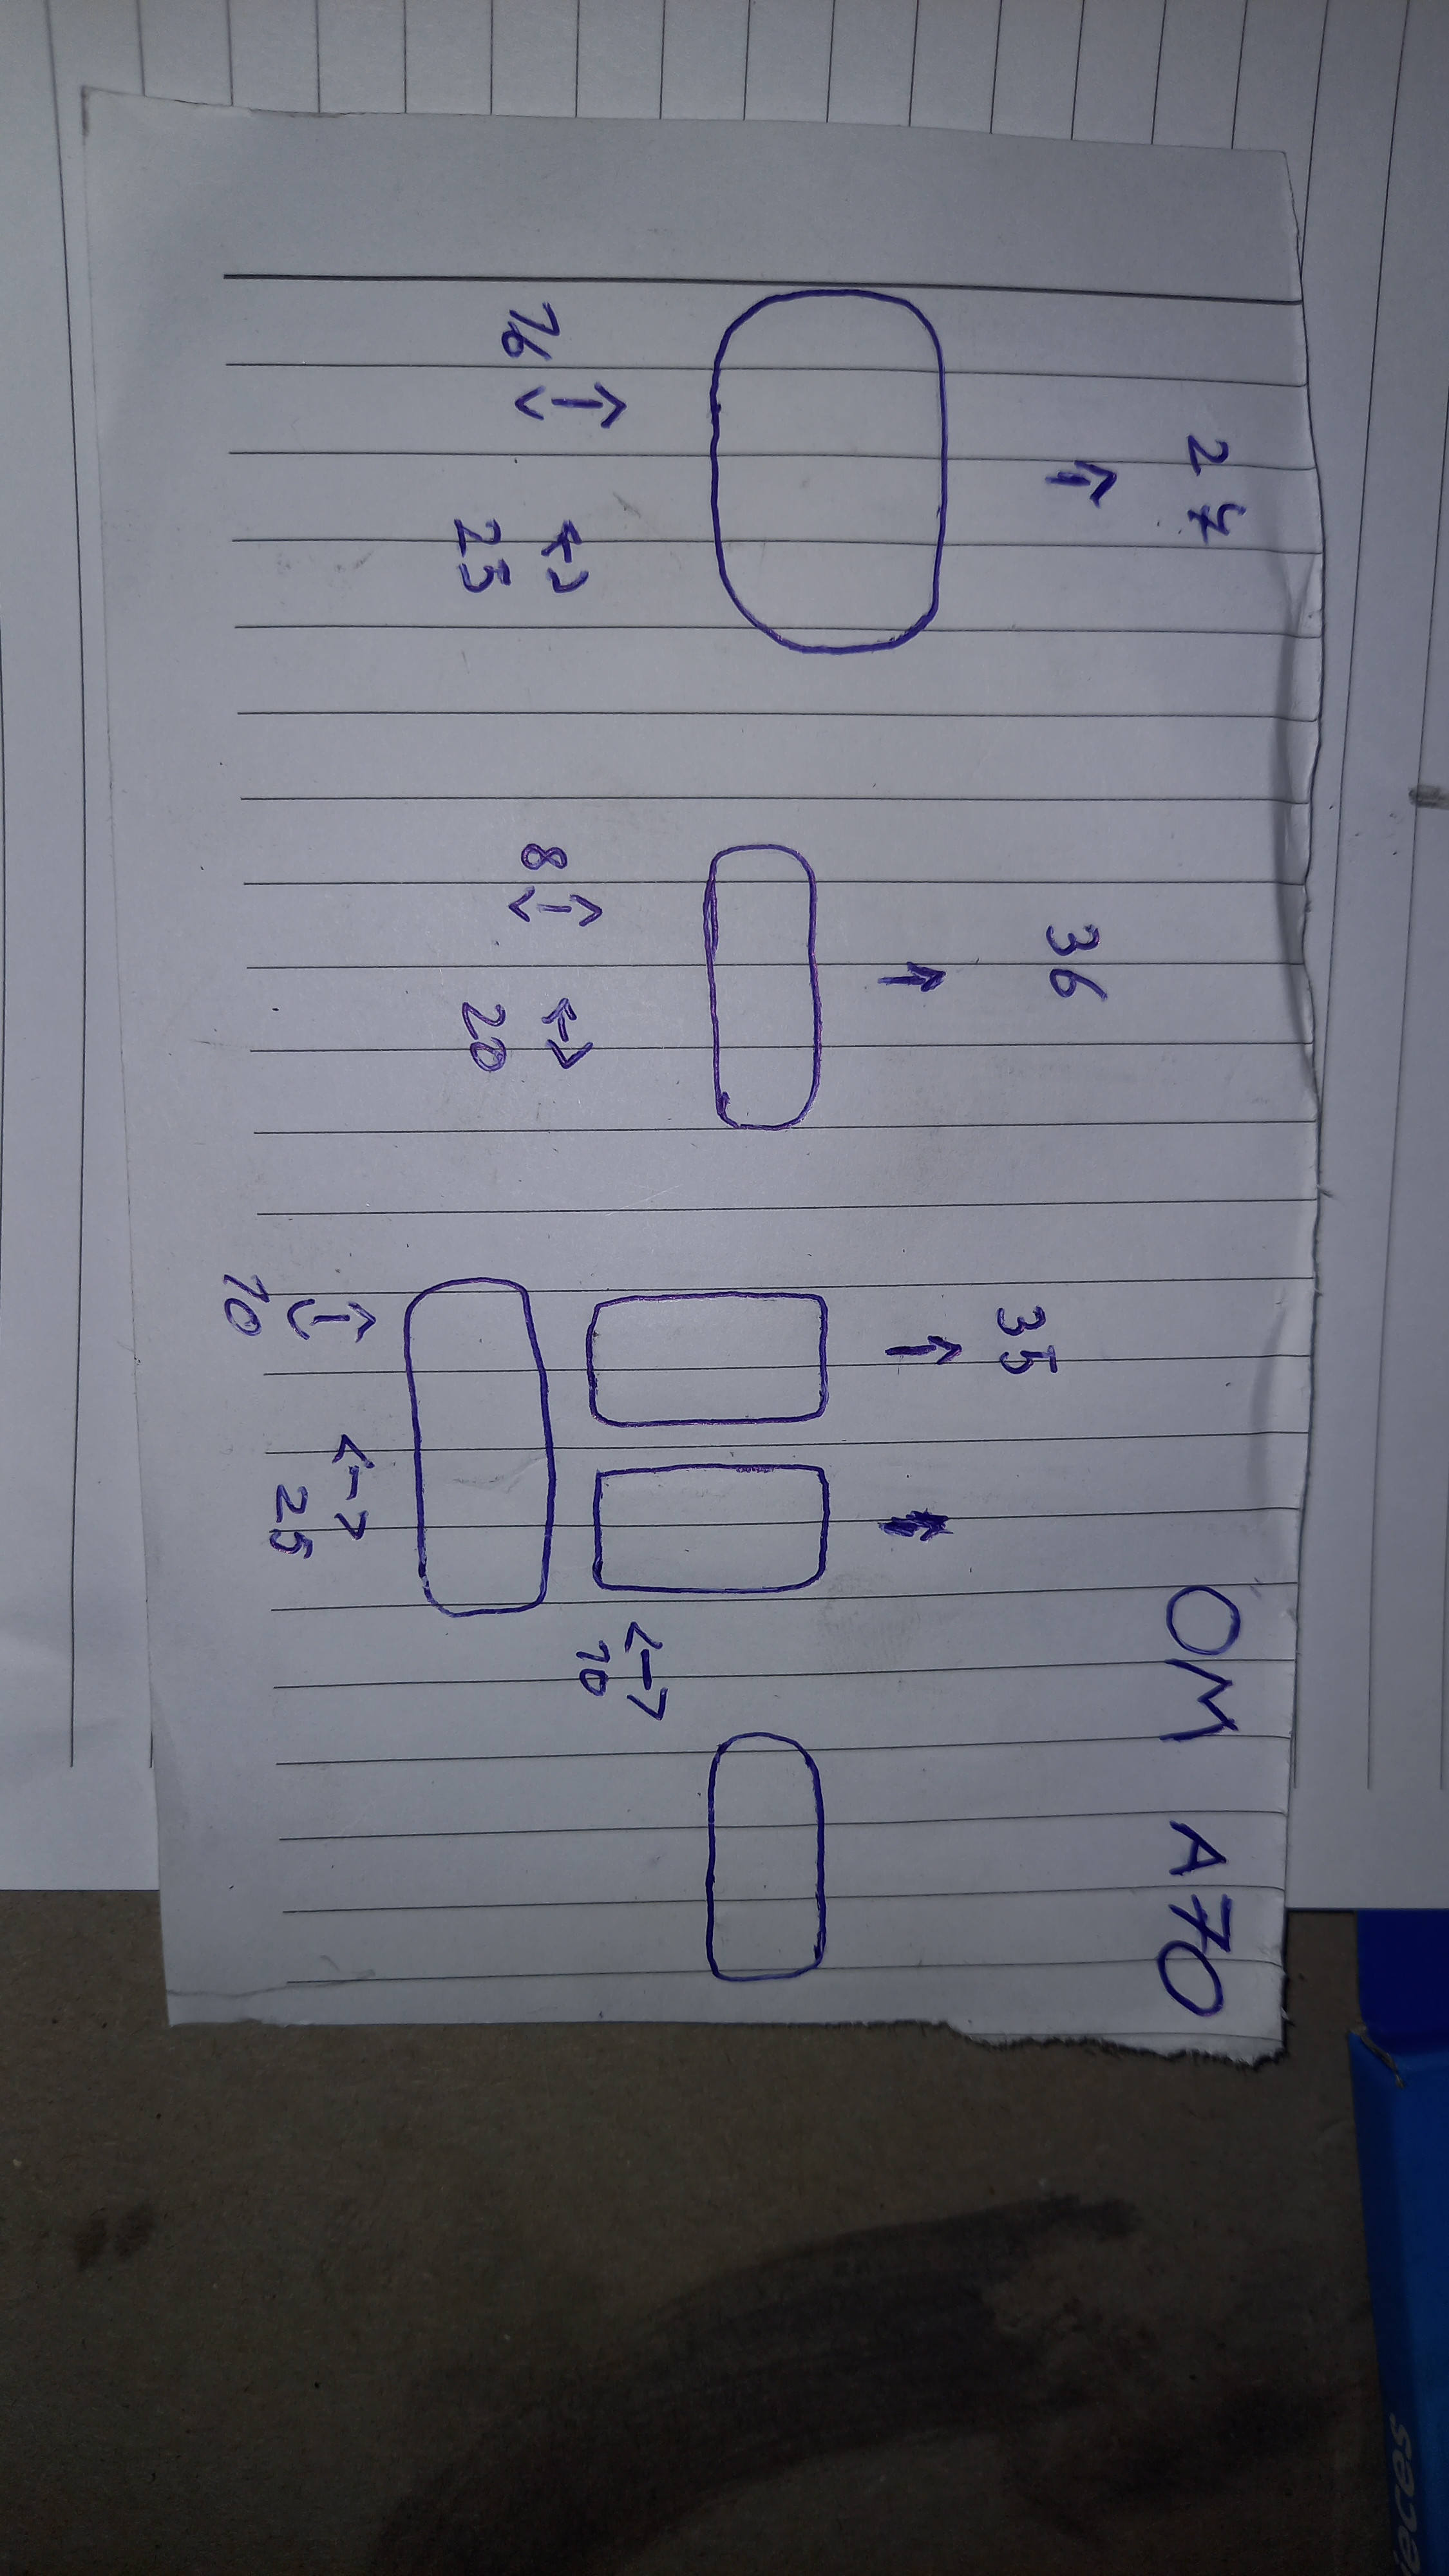 24 OM A70
36
35
10
16 8
25 20
25
10